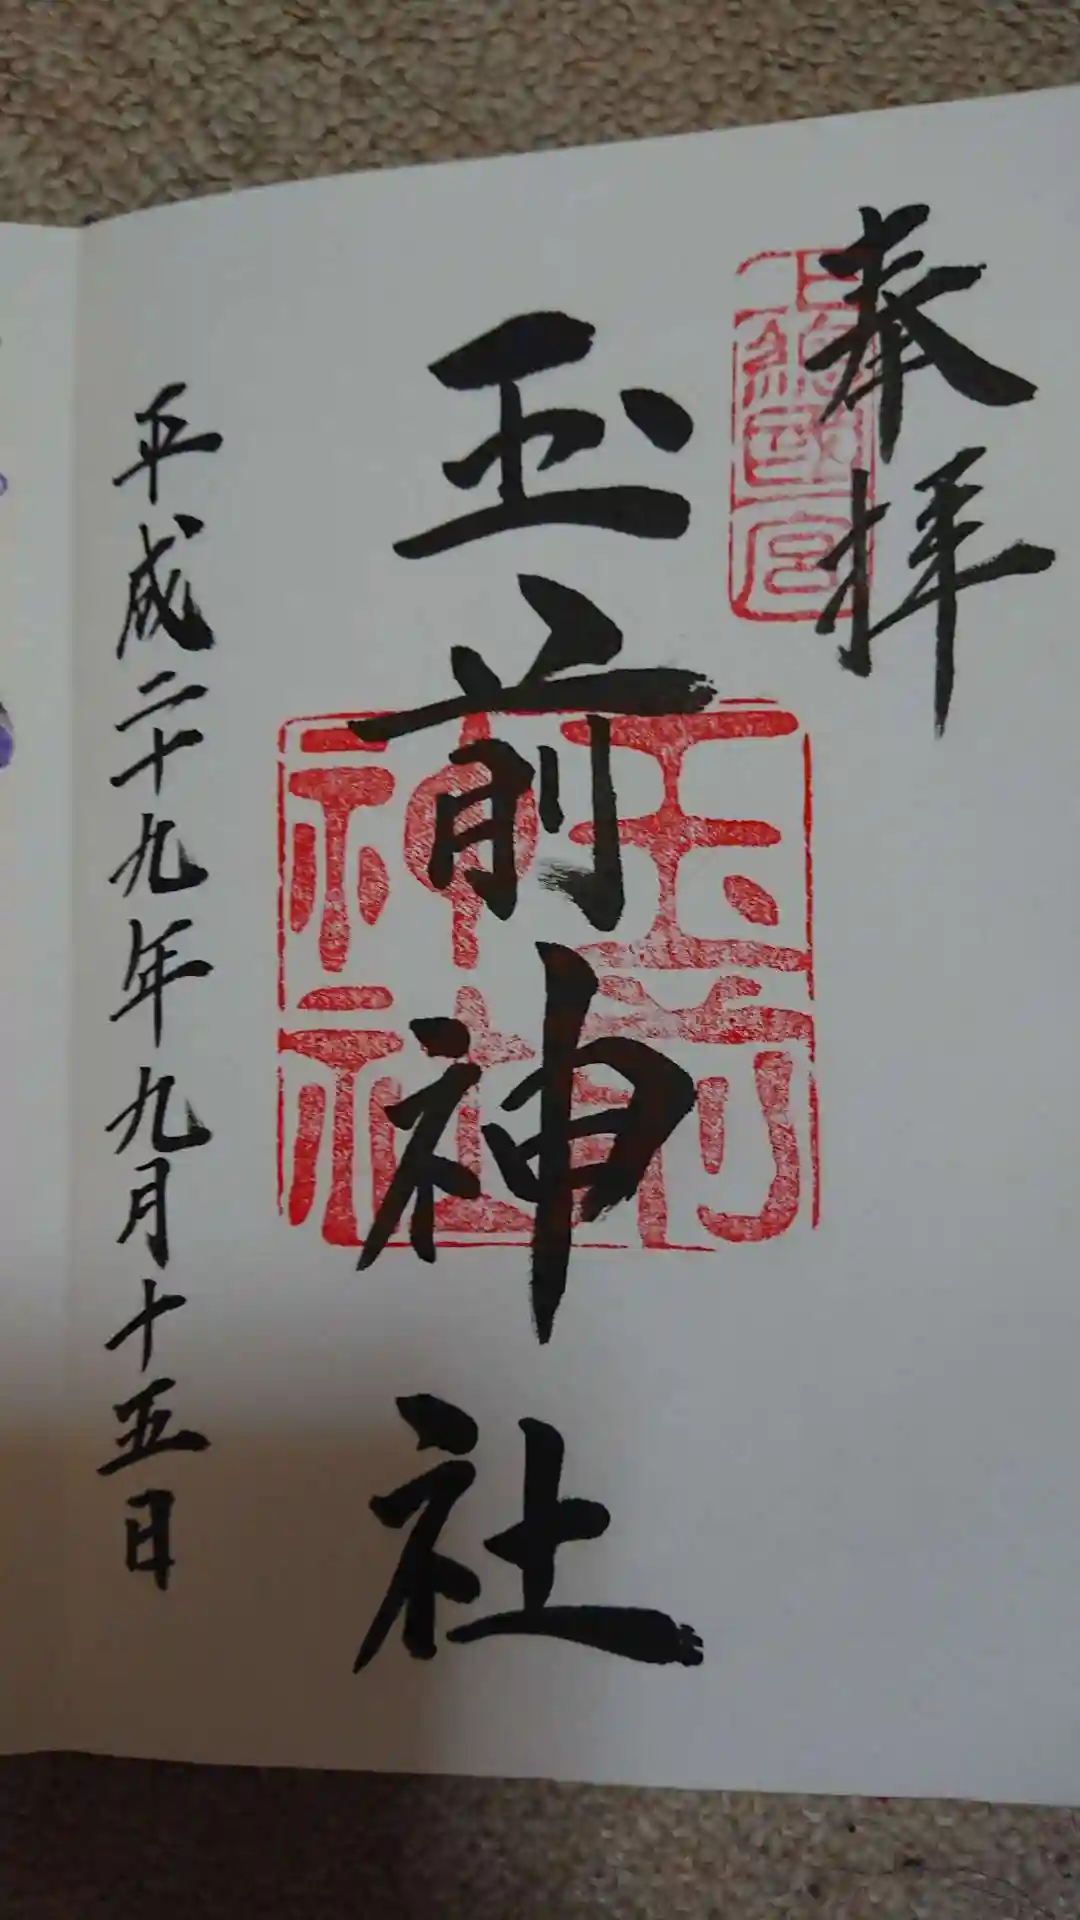 奉拝
上総国一宮
玉前神社
玉前神社
平成二十九年九月十五日